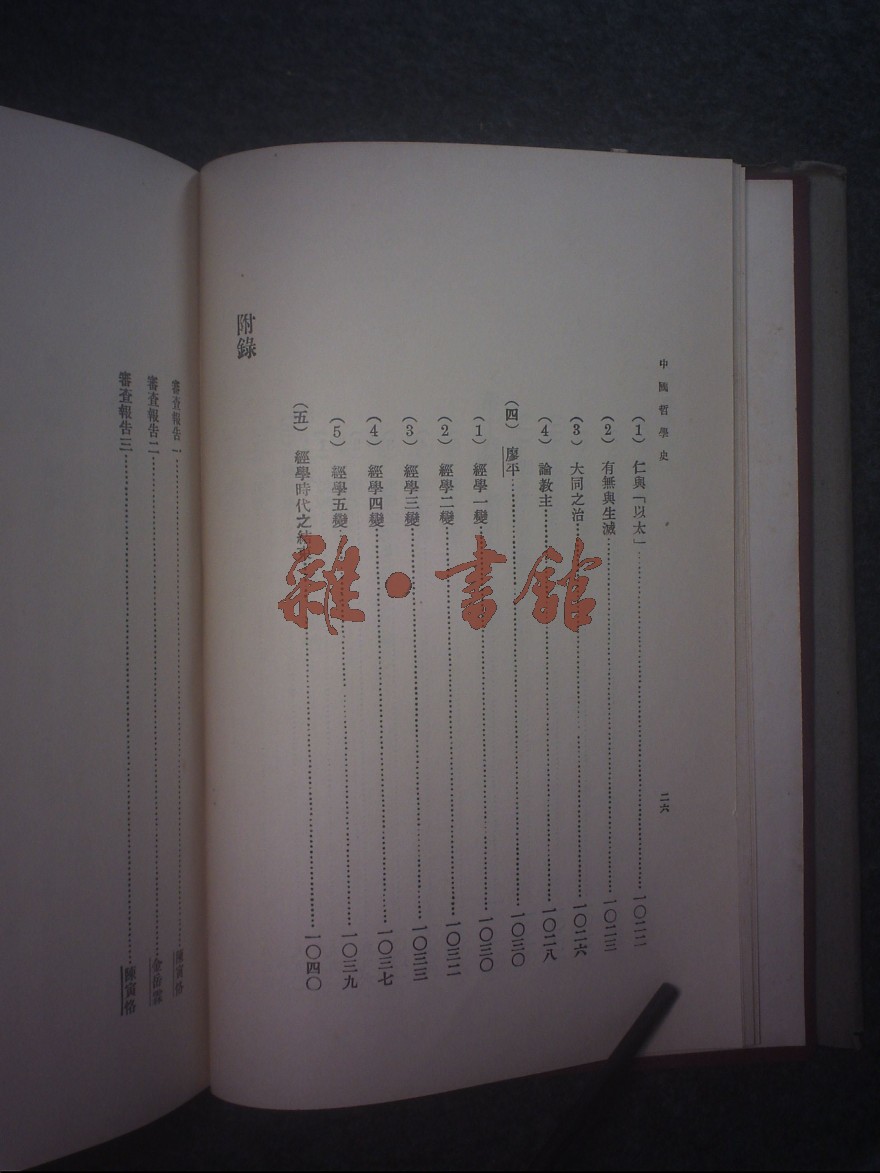 中國哲學史
二六
（1）仁與「以太」……一〇二二
（2）有無與生滅……一〇二三
（3）大同之治……一〇二六
（4）論教主……一〇二八
（四）廖平……一〇三〇
（1）經學一變……一〇三〇
（2）經學二變……一〇三二
（3）經學三變……一〇三三
（4）經學四變……一〇三七
（5）經學五變……一〇三九
（五）經學時代之結……一〇四〇
附錄
審查報告一……陳寅恪
審查報告二……金岳霖
審查報告三……陳寅恪
雜·書館